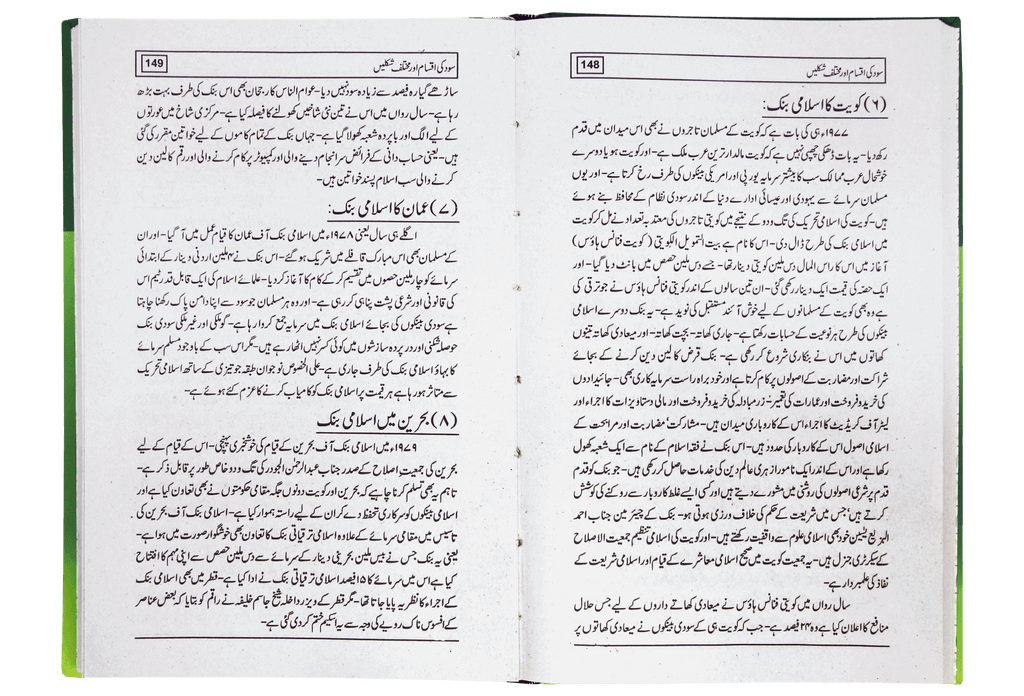 148
سود کی اقسام اور مختلف شکلیں
(۶) کویت کا اسلامی بنک:
۱۹۷۷ء ہی کی بات ہے کہ کویت کے مسلمان تاجروں نے بھی اس میدان میں قدم
رکھ دیا۔ یہ بات ڈھکی چھپی نہیں ہے کہ کویت مالدار ترین عرب ملک ہے۔ اور کویت ہو یا دوسرے
خوشحال عرب ممالک سب کا بیشتر سرمایہ یورپی اور امریکی بینکوں کی طرف رخ کرتا ہے۔ اور یوں
مسلمان سرمائے سے یہودی اور عیسائی ادارے دنیا کے اندر سودی نظام کے محافظ بنے ہوئے
ہیں۔ کویت کی اسلامی تحریک کی تگ ودو کے نتیجے میں کویتی تاجروں کی معتدبہ تعداد نے مل کر کویت
میں اسلامی بنک کی طرح ڈال دی۔ اس کا نام ہے بیت التمویل الکویتی (کویت فنانس ہاؤس)
آغاز میں اس کا راس المال دس ملین کویتی دینار تھا۔ جسے دس ملین حصص میں بانٹ دیا گیا۔ اور
ایک حصہ کی قیمت ایک دینار رکھی گئی۔ ان تین سالوں کے اندر کویتی فنانس ہاؤس نے جو ترقی کی
ہے وہ بھی کویت کے مسلمانوں کے لیے خوش آئند مستقبل کی نوید ہے۔ یہ بنک دوسرے اسلامی
بینکوں کی طرح ہر نوعیت کے حسابات رکھتا ہے۔ جاری کھاتہ۔ بچت کھاتہ۔ اور میعادی کھاتہ تینوں
کھاتوں میں اس نے بنکاری شروع کر رکھی ہے۔ بنک قرض کا لین دین کرنے کے بجائے
شراکت اور مضاربت کے اصولوں پر کام کرتا ہے اور خود براہ راست سرمایہ کاری بھی۔ جائیدادوں
کی خرید و فروخت اور عمارات کی تعمیر۔ زرمبادلہ کی خرید و فروخت اور مالی دستاویزات کا اجراء اور
لیٹر آف کریڈیٹ کا اجراء اس کے کاروباری میدان ہیں۔ مشارکت' مضاربت اور مرابحت کے
اسلامی اصول اس کے کاروبار کی حدود ہیں۔ اس بنک نے فقہ اسلام کے نام سے ایک شعبہ کھول
رکھا ہے اور اس کے اندر ایک نامور ازہری عالم دین کی خدمات حاصل کر رکھی ہیں۔ جو بنک کو قدم
قدم پر شرعی اصولوں کی روشنی میں مشورے دیتے ہیں اور کسی ایسے غلط کاروبار سے روکنے کی کوشش
کرتے ہیں' جس میں شریعت کے حکم کی خلاف ورزی ہوتی ہو۔ بنک کے چیئرمین جناب احمد
البزیع لیسین خود بھی اسلامی علوم سے واقفیت رکھتے ہیں۔ اور کویت کی اسلامی تنظیم جمعیت الاصلاح
کے سیکرٹری جنرل ہیں۔ یہ جمعیت کویت میں صحیح اسلامی معاشرے کے قیام اور اسلامی شریعت کے
نفاذ کی علمبردار ہے۔
سال رواں میں کویتی فنانس ہاؤس نے میعادی کھاتے داروں کے لیے جس حلال
منافع کا اعلان کیا ہے وہ ۲۴ فیصد ہے۔ جب کہ کویت ہی کے سودی بینکوں نے میعادی کھاتوں پر
149
سود کی اقسام اور مختلف شکلیں
ساڑھے گیارہ فیصد سے زیادہ سود نہیں دیا۔ عوام الناس کا رجحان بھی اس بنک کی طرف بہت بڑھ
رہا ہے۔ سال رواں میں اس نے تین نئی شاخیں کھولنے کا فیصلہ کیا ہے۔ مرکزی شاخ میں عورتوں
کے لیے الگ اور باپردہ شعبہ کھولا گیا ہے۔ جہاں بنک کے تمام کاموں کے لیے خواتین مقرر کی گئی
ہیں۔ یعنی حساب دانی کے فرائض سرانجام دینے والی اور کمپیوٹر پر کام کرنے والی اور رقم کا لین دین
کرنے والی سب اسلام پسند خواتین ہیں۔
(۷) عمان کا اسلامی بنک:
اگلے ہی سال یعنی ۱۹۷۸ء میں اسلامی بنک آف عمان کا قیام عمل میں آ گیا۔ اور ان
کے مسلمان بھی اس مبارک قافلے میں شریک ہو گئے۔ اس بنک نے ۴ ملین اردنی دینار کے ابتدائی
سرمائے کو چار ملین حصوں میں تقسیم کر کے کام کا آغاز کر دیا۔ علمائے اسلام کی ایک قابل قدر ٹیم اس
کی قانونی اور شرعی پشت پناہی کر رہی ہے۔ اور وہ ہر مسلمان جو سود سے اپنا دامن پاک رکھنا چاہتا
ہے سودی بینکوں کی بجائے اسلامی بنک میں سرمایہ جمع کروا رہا ہے۔ گو ملکی اور غیر ملکی سودی بنک
حوصلہ شکنی اور در پردہ سازشوں میں کوئی کسر نہیں اٹھا رہے ہیں۔ مگر اس سب کے باوجود مسلم سرمائے
کا بہاؤ اسلامی بنک کی طرف جاری ہے۔ علی الخصوص نوجوان طبقہ جو تیزی کے ساتھ اسلامی تحریک
سے متاثر ہو رہا ہے ہر قیمت پر اسلامی بنک کو کامیاب کرنے کا عزم کئے ہوئے ہے۔
(۸) بحرین میں اسلامی بنک
۱۹۷۹ء میں اسلامی بنک آف بحرین کے قیام کی خوشخبری پہنچی۔ اس کے قیام کے لیے
بحرین کی جمعیت اصلاح کے صدر جناب عبدالرحمٰن الجودر کی تگ ودو خاص طور پر قابل ذکر ہے۔
تاہم یہ بھی تسلیم کرنا چاہیے کہ بحرین اور کویت دونوں جگہ مقامی حکومتوں نے بھی تعاون کیا ہے اور
اسلامی بینکوں کو سرکاری تحفظ دے کر ان کے لیے راستہ ہموار کیا ہے۔ اسلامی بنک آف بحرین کی
تاسیس میں مقامی سرمائے کے علاوہ اسلامی ترقیاتی بنک کا تعاون بھی خوشگوار صورت میں ہوا ہے۔
یعنی یہ بنک جس نے بیس ملین بحرینی دینار کے سرمائے سے دس ملین حصص سے اپنی مہم کا افتتاح
کیا ہے اس میں سرمائے کا ۱۵ فیصد اسلامی ترقیاتی بنک نے ادا کیا ہے۔ قطر میں بھی اسلامی بنک
کے اجراء کا نظریہ پایا جاتا تھا۔ مگر قطر کے وزیر داخلہ شیخ جاسم خلیفہ نے راقم کو بتایا کہ بعض عناصر
کے افسوس ناک رویے کی وجہ سے یہ اسکیم ختم کر دی گئی ہے۔